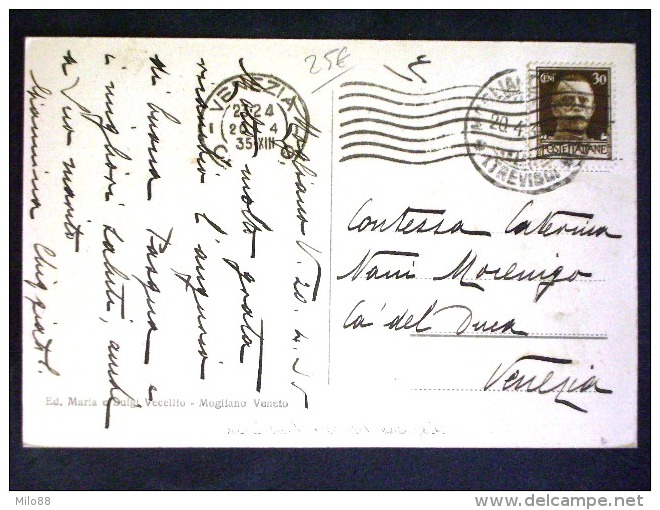 25€
Mogliano V. 20.4.35
molto grata
ricambio l'augurio
di buona Pasqua e
i migliori saluti, anche
a Suo marito
Giannina
VENEZIA
23-24
20 4
35 XIII
MOGLIANO
20.4
(TREVISO)
CENT 30
POSTE ITALIANE
Contessa Caterina
Nani Mocenigo
Ca' del Duca
Venezia
Ed. Maria e Luigi Vecellio - Mogliano Veneto
Milo88
delcampe.net